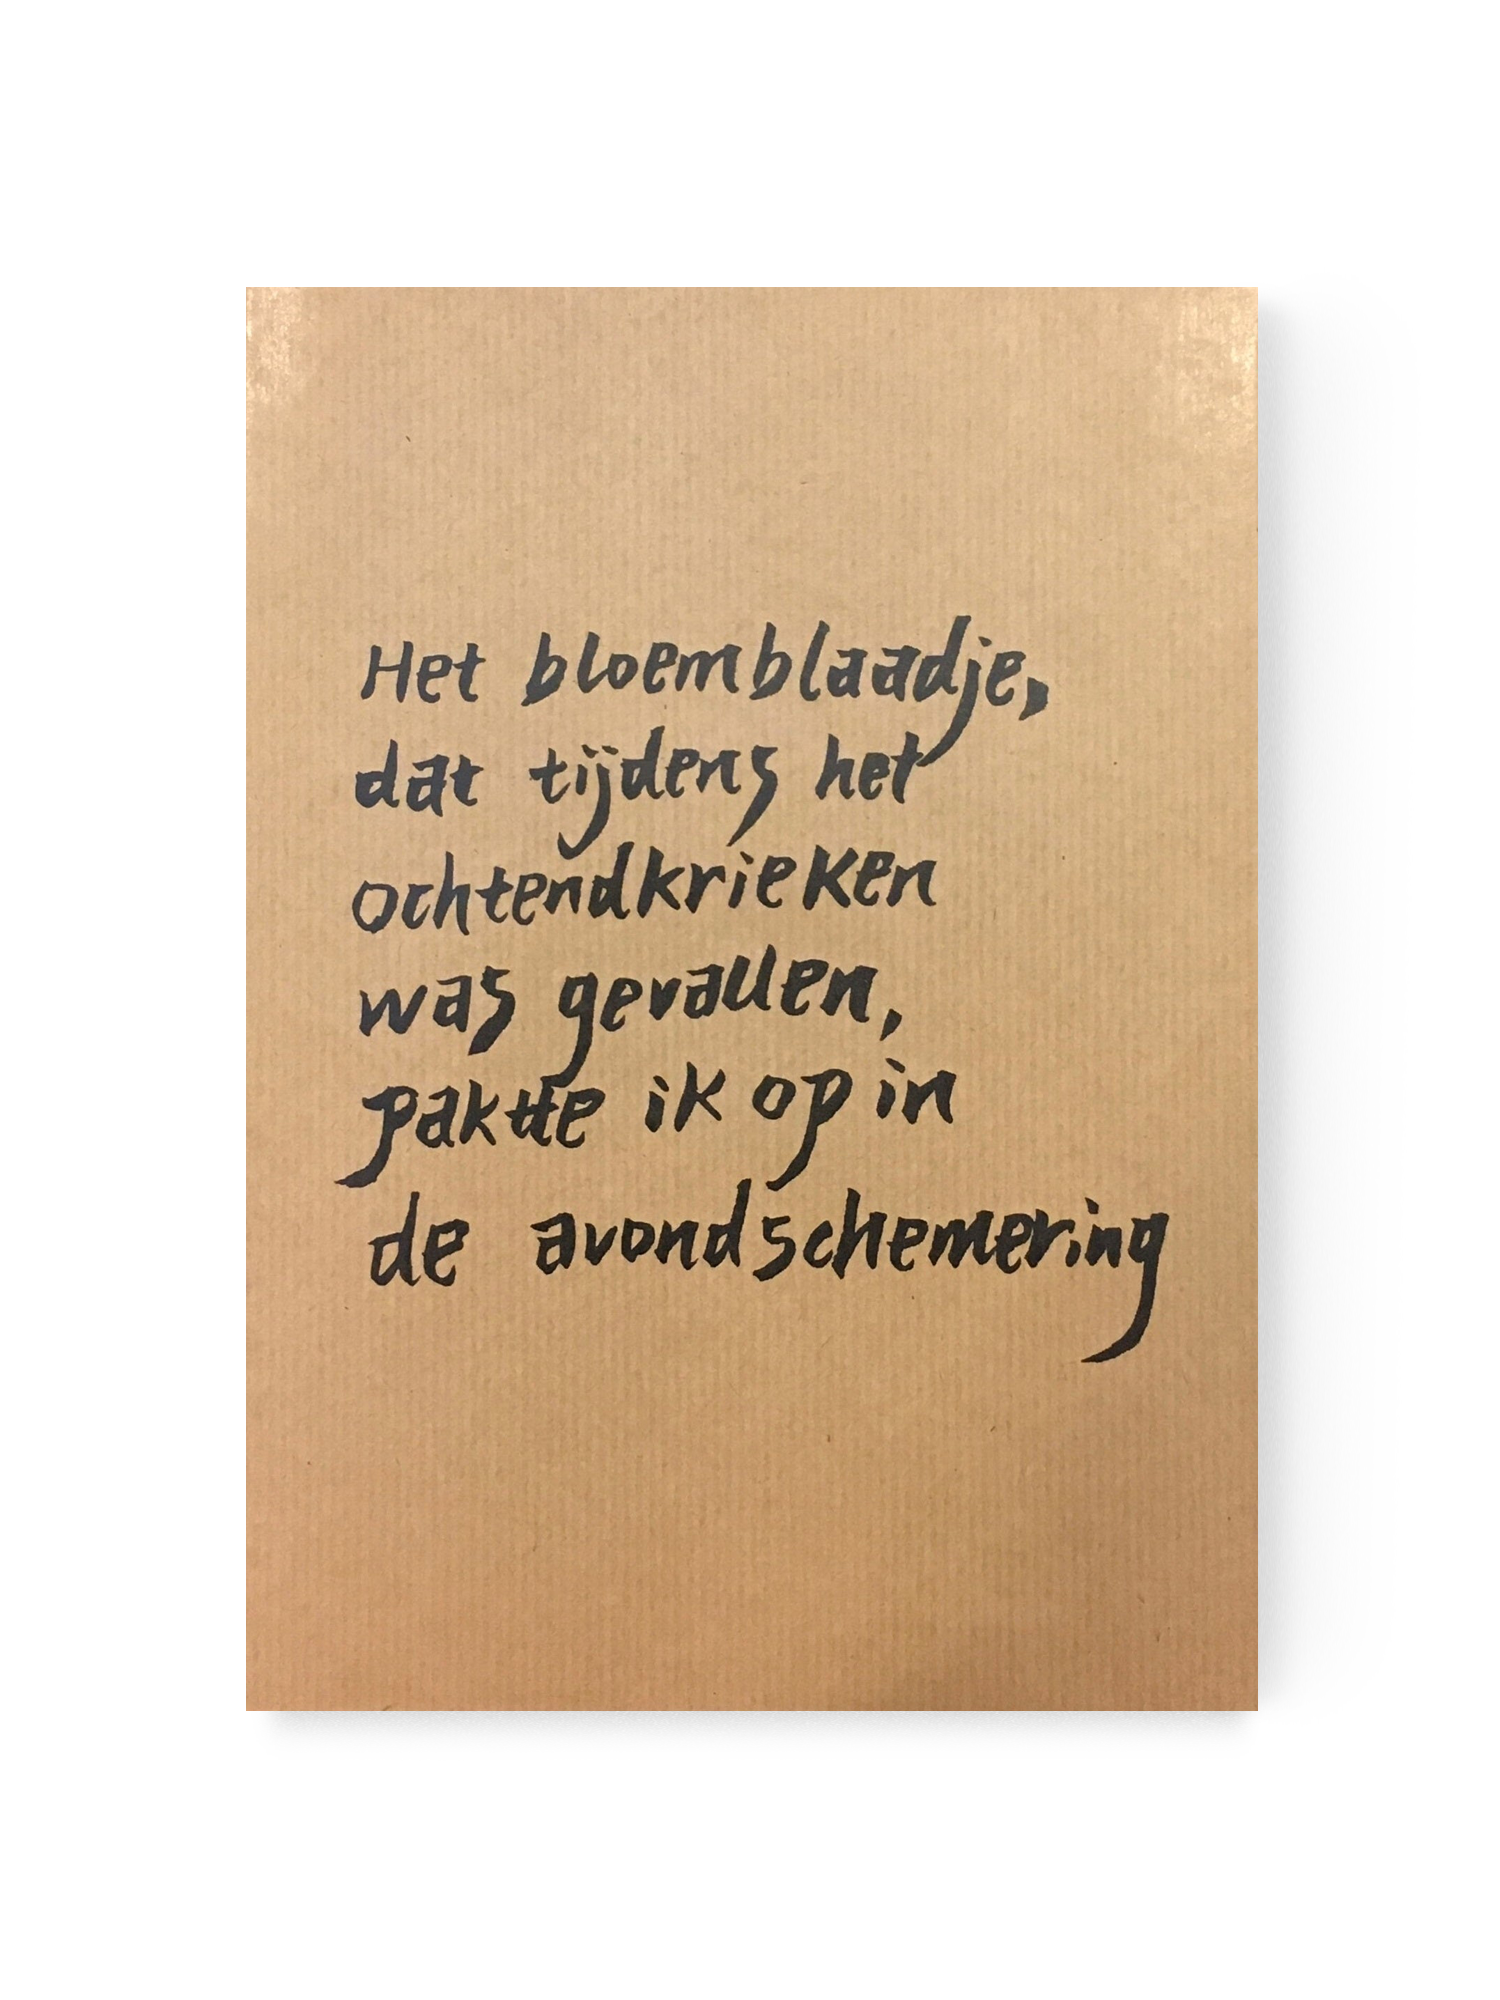 Het bloemblaadje,
dat tijdens het
ochtendkrieken
was gevallen,
paktte ik op in
de avondschemering